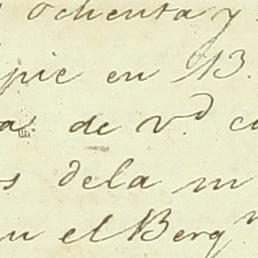 ochenta y
pie en 13.
as de v.d co
s dela m
en el Berg.n